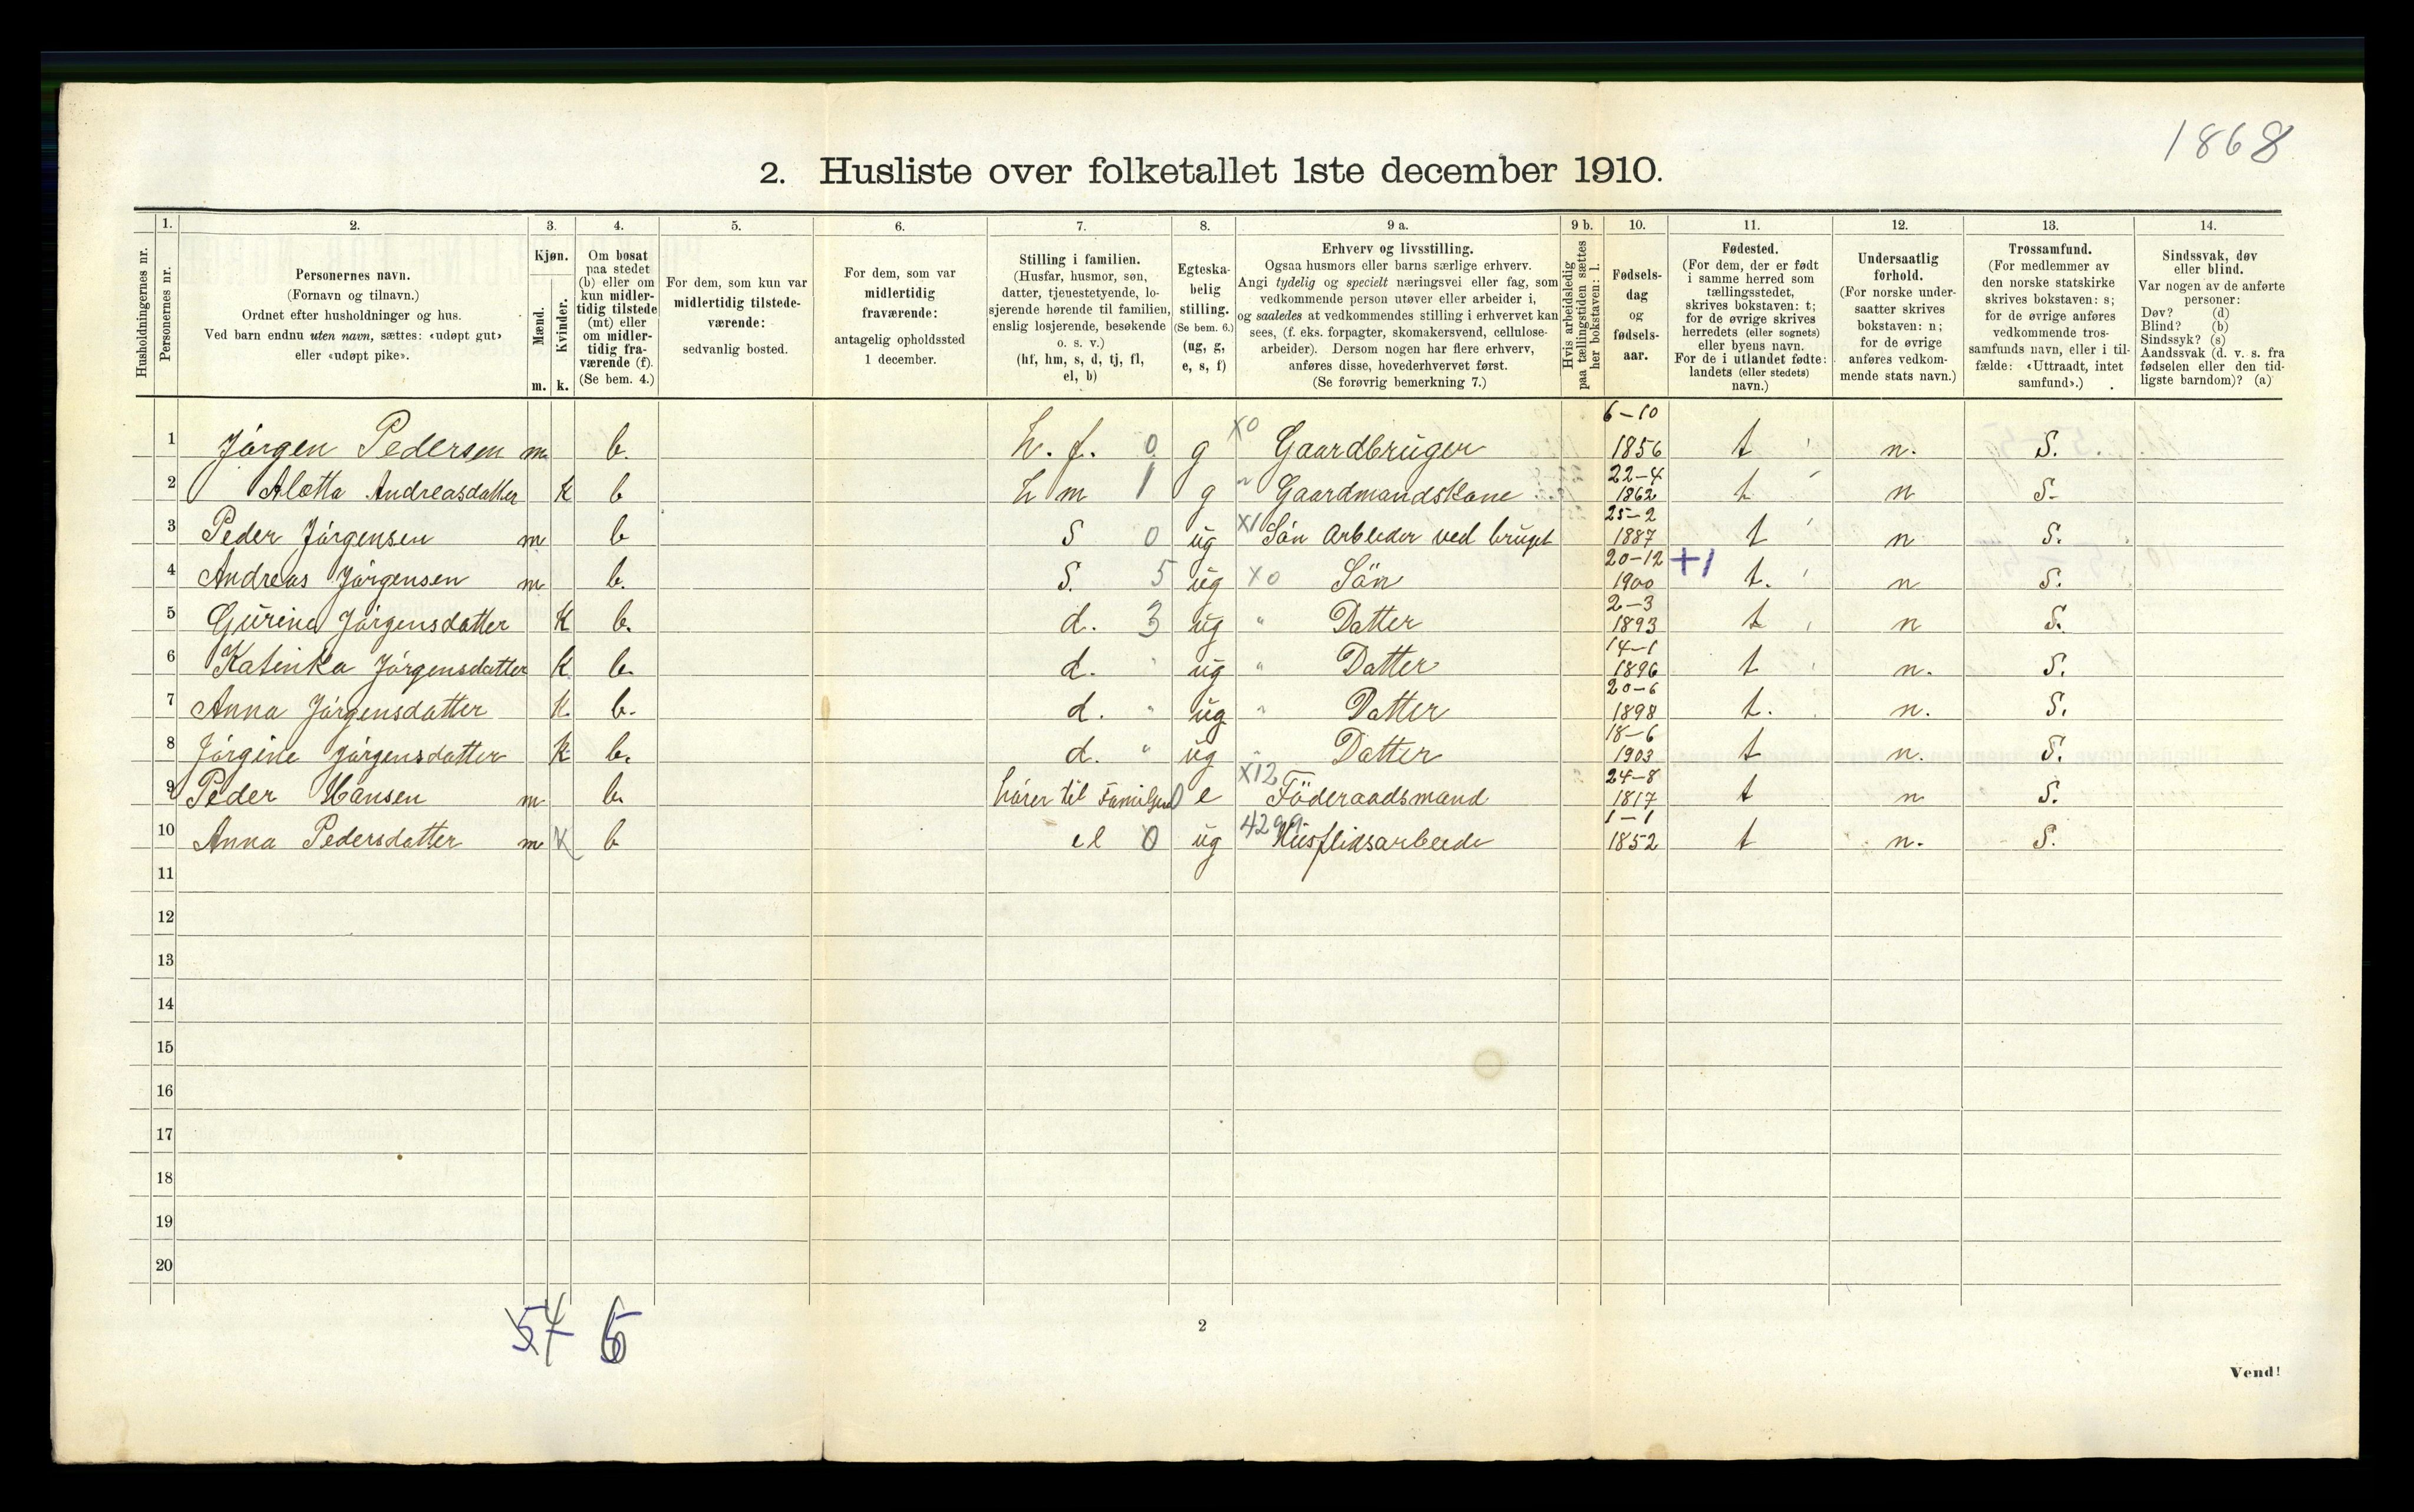 1868
2. Husliste over folketallet 1ste december 1910.
Husholdningernes nr.
1.
Personernes nr.
2.
Personernes navn.
(Fornavn og tilnavn.)
Ordnet efter husholdninger og hus.
Ved barn endnu uten navn, sættes: «udøpt gut»
eller «udøpt pike».
3.
Kjøn.
Mænd.
Kvinder.
m. k.
4.
Om bosat
paa stedet
(b) eller om
kun midler-
tidig tilstede
(mt) eller
om midler-
tidig fra-
værende (f).
(Se bem. 4.)
5.
For dem, som kun var
midlertidig tilstede-
værende:
sedvanlig bosted.
6.
For dem, som var
midlertidig
fraværende:
antagelig opholdssted
1 december.
7.
Stilling i familien.
(Husfar, husmor, søn,
datter, tjenestetyende, lo-
sjerende hørende til familien,
enslig losjerende, besøkende
o. s. v.)
(hf, hm, s, d, tj, fl,
el, b)
8.
Egteska-
belig
stilling.
(Se bem. 6.)
(ug, g,
e, s, f)
9 a.
Erhverv og livsstilling.
Ogsaa husmors eller barns særlige erhverv.
Angi tydelig og specielt næringsvei eller fag, som
vedkommende person utøver eller arbeider i,
og saaledes at vedkommendes stilling i erhvervet kan
sees, (f. eks. forpagter, skomakersvend, cellulose-
arbeider). Dersom nogen har flere erhverv,
anføres disse, hovederhvervet først.
(Se forøvrig bemerkning 7.)
9 b.
Hvis arbeidsledig
paa tællingstiden sættes
her bokstaven: l.
10.
Fødsels-
dag
og
fødsels-
aar.
11.
Fødested.
(For dem, der er født
i samme herred som
tællingsstedet,
skrives bokstaven: t;
for de øvrige skrives
herredets (eller sognets)
eller byens navn.
For de i utlandet fødte:
landets (eller stedets)
navn.)
12.
Undersaatlig
forhold.
(For norske under-
saatter skrives
bokstaven: n;
for de øvrige
anføres vedkom-
mende stats navn.)
13.
Trossamfund.
(For medlemmer av
den norske statskirke
skrives bokstaven: s;
for de øvrige anføres
vedkommende tros-
samfunds navn, eller i til-
fælde: «Uttraadt, intet
samfund».)
14.
Sindssvak, døv
eller blind.
Var nogen av de anførte
personer:
Døv? (d)
Blind? (b)
Sindssyk? (s)
Aandssvak (d. v. s. fra
fødselen eller den tid-
ligste barndom)? (a)
1 Jörgen Pedersen m b. h. f. 0 g X0 Gaardbruger 6-10 1856 t n. S.
2 Aletta Andreasdatter K b h m 1 g " Gaardmandskone 22-4 1862 t n S-
3 Peder Jörgensen m b S 0 ug X1 Sön Arbeider ved bruget 25-2 1887 t n S.
4 Andreas Jörgensen m b. S. 5 ug X0 Sön 20-12 1900 +1 t. n S.
5 Gurine Jörgensdatter K b. d. 3 ug " Datter 2-3 1893 t n S.
6 Katinka Jörgensdatter K b. d. " ug " Datter 14-1 1896 t n. S.
7 Anna Jörgensdatter K. b. d. " ug " Datter 20-6 1898 t. n. S.
8 Jörgine Jörgensdatter K b. d. " ug " Datter 18-6 1903 t n. S.
9 Peder Hansen m b. hörer til Familjen 0 e X12 Föderaadsmand 24-8 1817 t n S.
10 Anna Pedersdatter m K b el 0 ug 4299 Husflidsarbeide 1-1 1852 t n. S.
11
12
13
14
15
16
17
18
19
20
2
Vend!